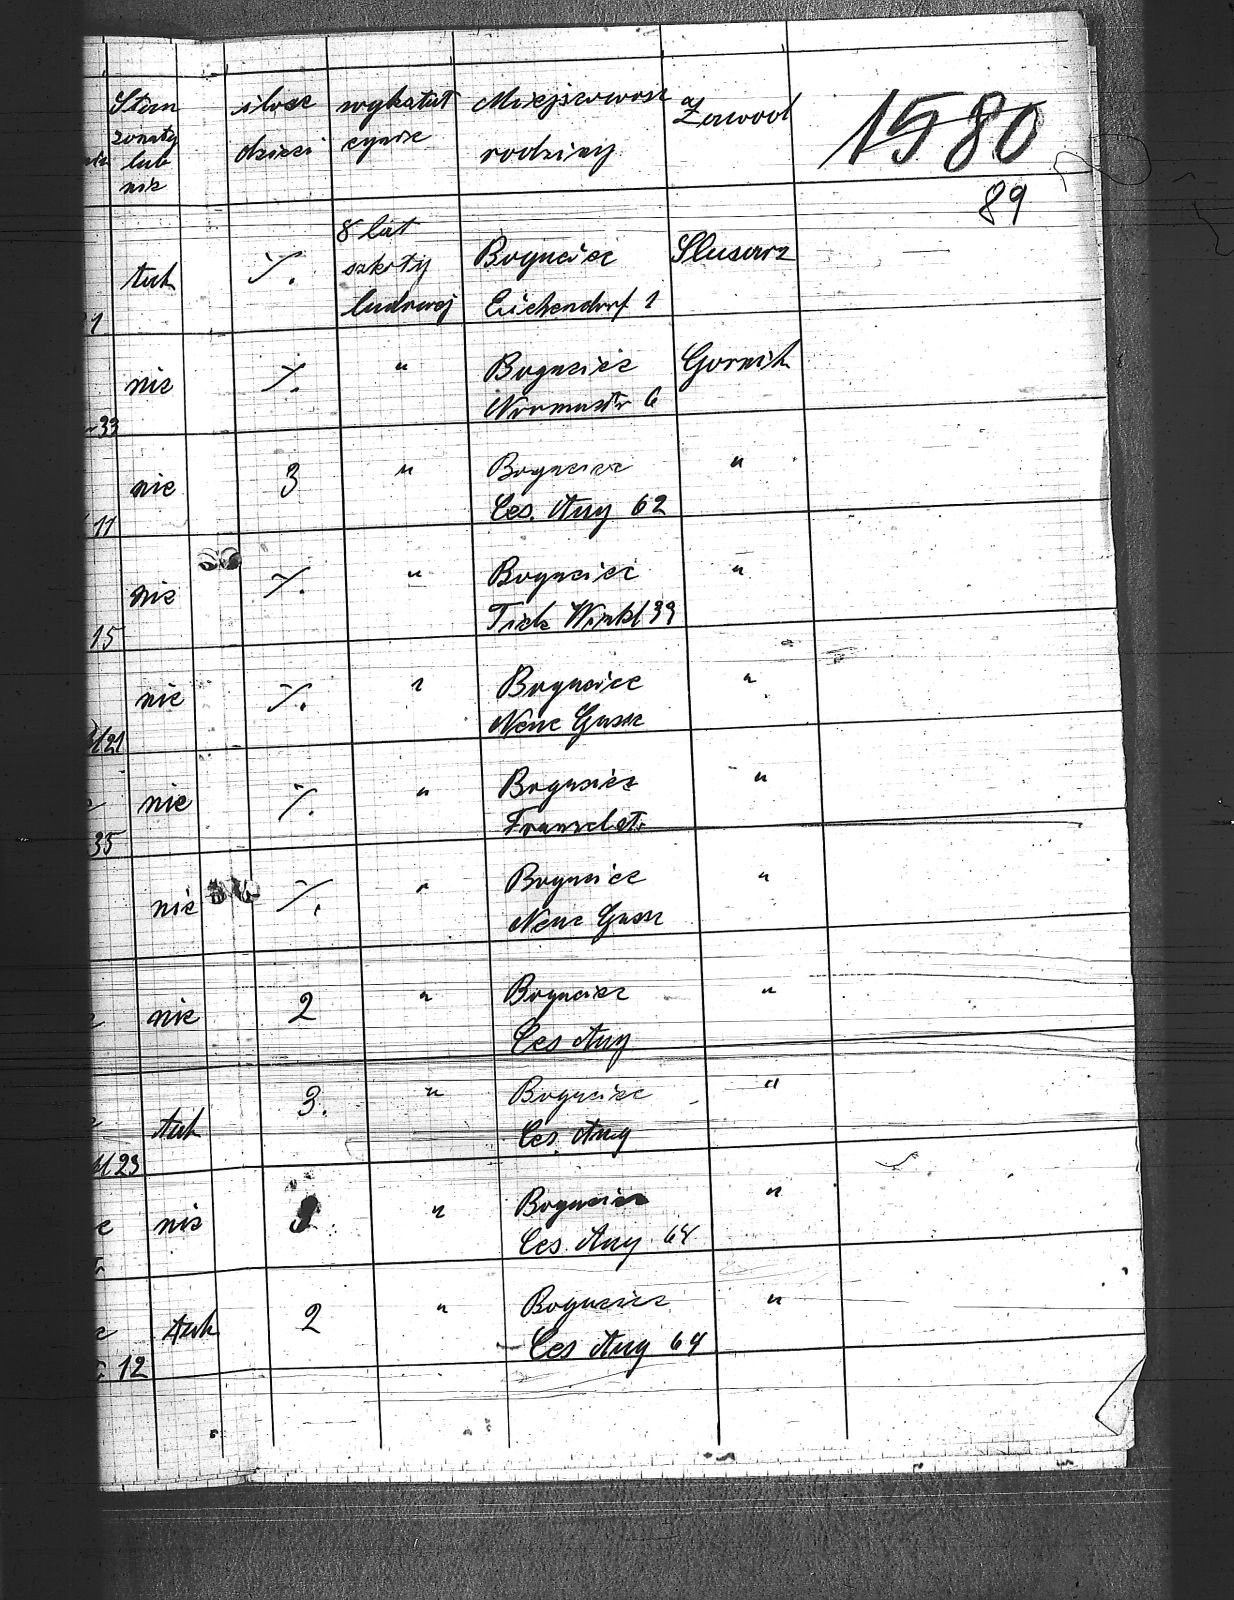 Stan żonaty lub nie | ilosc dzieci | wykształcenie | Miejscowosc rodziny | Zawood
1580
89
tak | ·/. | 8 lat szkoły ludowej | Bogucice Eichendorf 1 | Slusarz
1
nie | ·/. | " | Bogucice Normastr 6 | Gornik
33
nie | 3 | " | Bogucice Ces. Aug 62 | "
11
nie | ·/. | " | Bogucice Tiele Winkl 39 | "
15
nie | ·/. | " | Bogucice Neue Gasse | "
21
nie | ·/. | " | Bogucice | "
35
nie | ·/. | " | Bogucice Neue Gasse | "
nie | 2 | " | Bogucice Ces Aug | "
tak | 3. | " | Bogucice Ces. Aug | "
23
nie | " | Bogucice Ces. Aug 64 | "
tak | 2 | " | Bogucice Ces Aug 64 | "
12